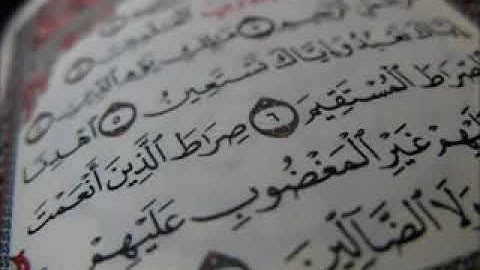 ٱلرَّحِيمِ
مَٰلِكِ يَوْمِ ٱلدِّينِ
إِيَّاكَ نَعْبُدُ وَإِيَّاكَ نَسْتَعِينُ ٥ ٱهْدِنَا
ٱلصِّرَٰطَ ٱلْمُسْتَقِيمَ ٦ صِرَٰطَ ٱلَّذِينَ أَنْعَمْتَ
عَلَيْهِمْ غَيْرِ ٱلْمَغْضُوبِ عَلَيْهِمْ
وَلَا ٱلضَّآلِّينَ